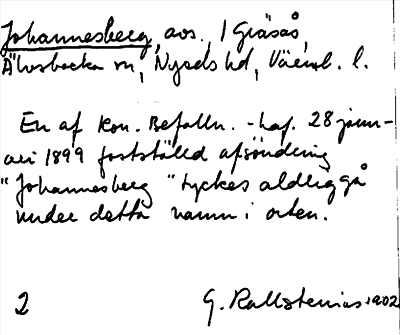 Johannesberg, avs. 1 Gräsås,
Älvsbacka sn, Nyeds hd, Värml. l.
En af Kon. Befalln. -haf. 28 janu-
ari 1899 fastställd afsöndring
"Johannesberg" tyckes aldrig gå
under detta namn i orten.
2 G. Kallstenius 1902